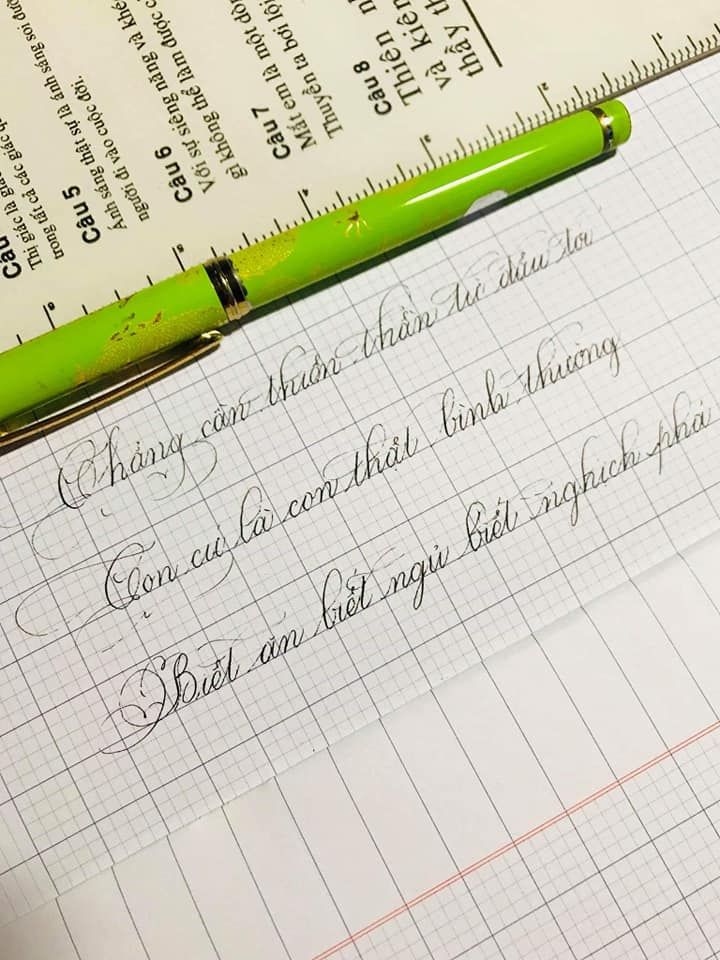 Câu 5
Thị giác là giác
trong tất cả các giác
Ánh sáng thật sự là ánh sáng soi
người đi vào cuộc đời.
Câu 6
Với sự siêng năng và
gì không thể làm được
Câu 7
Mắt em là một
Thuyền ta bơi
Câu 8
Thiên
và kiên
thầy
Chẳng cần thuần thần từ đầu tới
Con cứ là con thật bình thường
Biết ăn biết ngủ biết nghịch phá